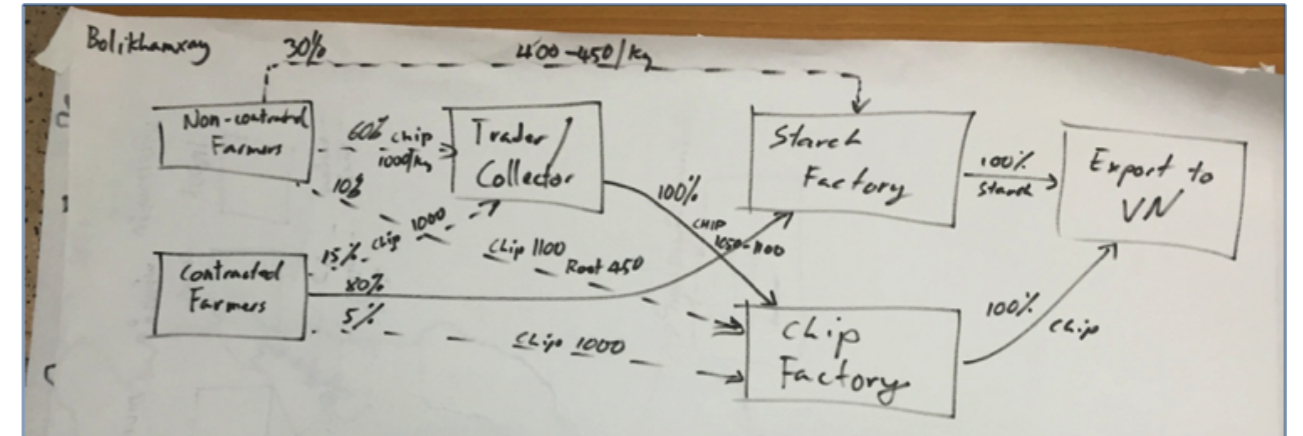 Bolikhamxay
30%
400-450/kg
Non-contracted
Farmers
60% chip
1000/kg
10%
Trader/
Collector
Starch
Factory
100%
Starch
Export to
VN
100%
CHIP
1050-1100
15% chip 1000
Chip 1100
Root 450
Contracted
Farmers
80%
5%
Chip 1000
Chip
Factory
100%
Chip